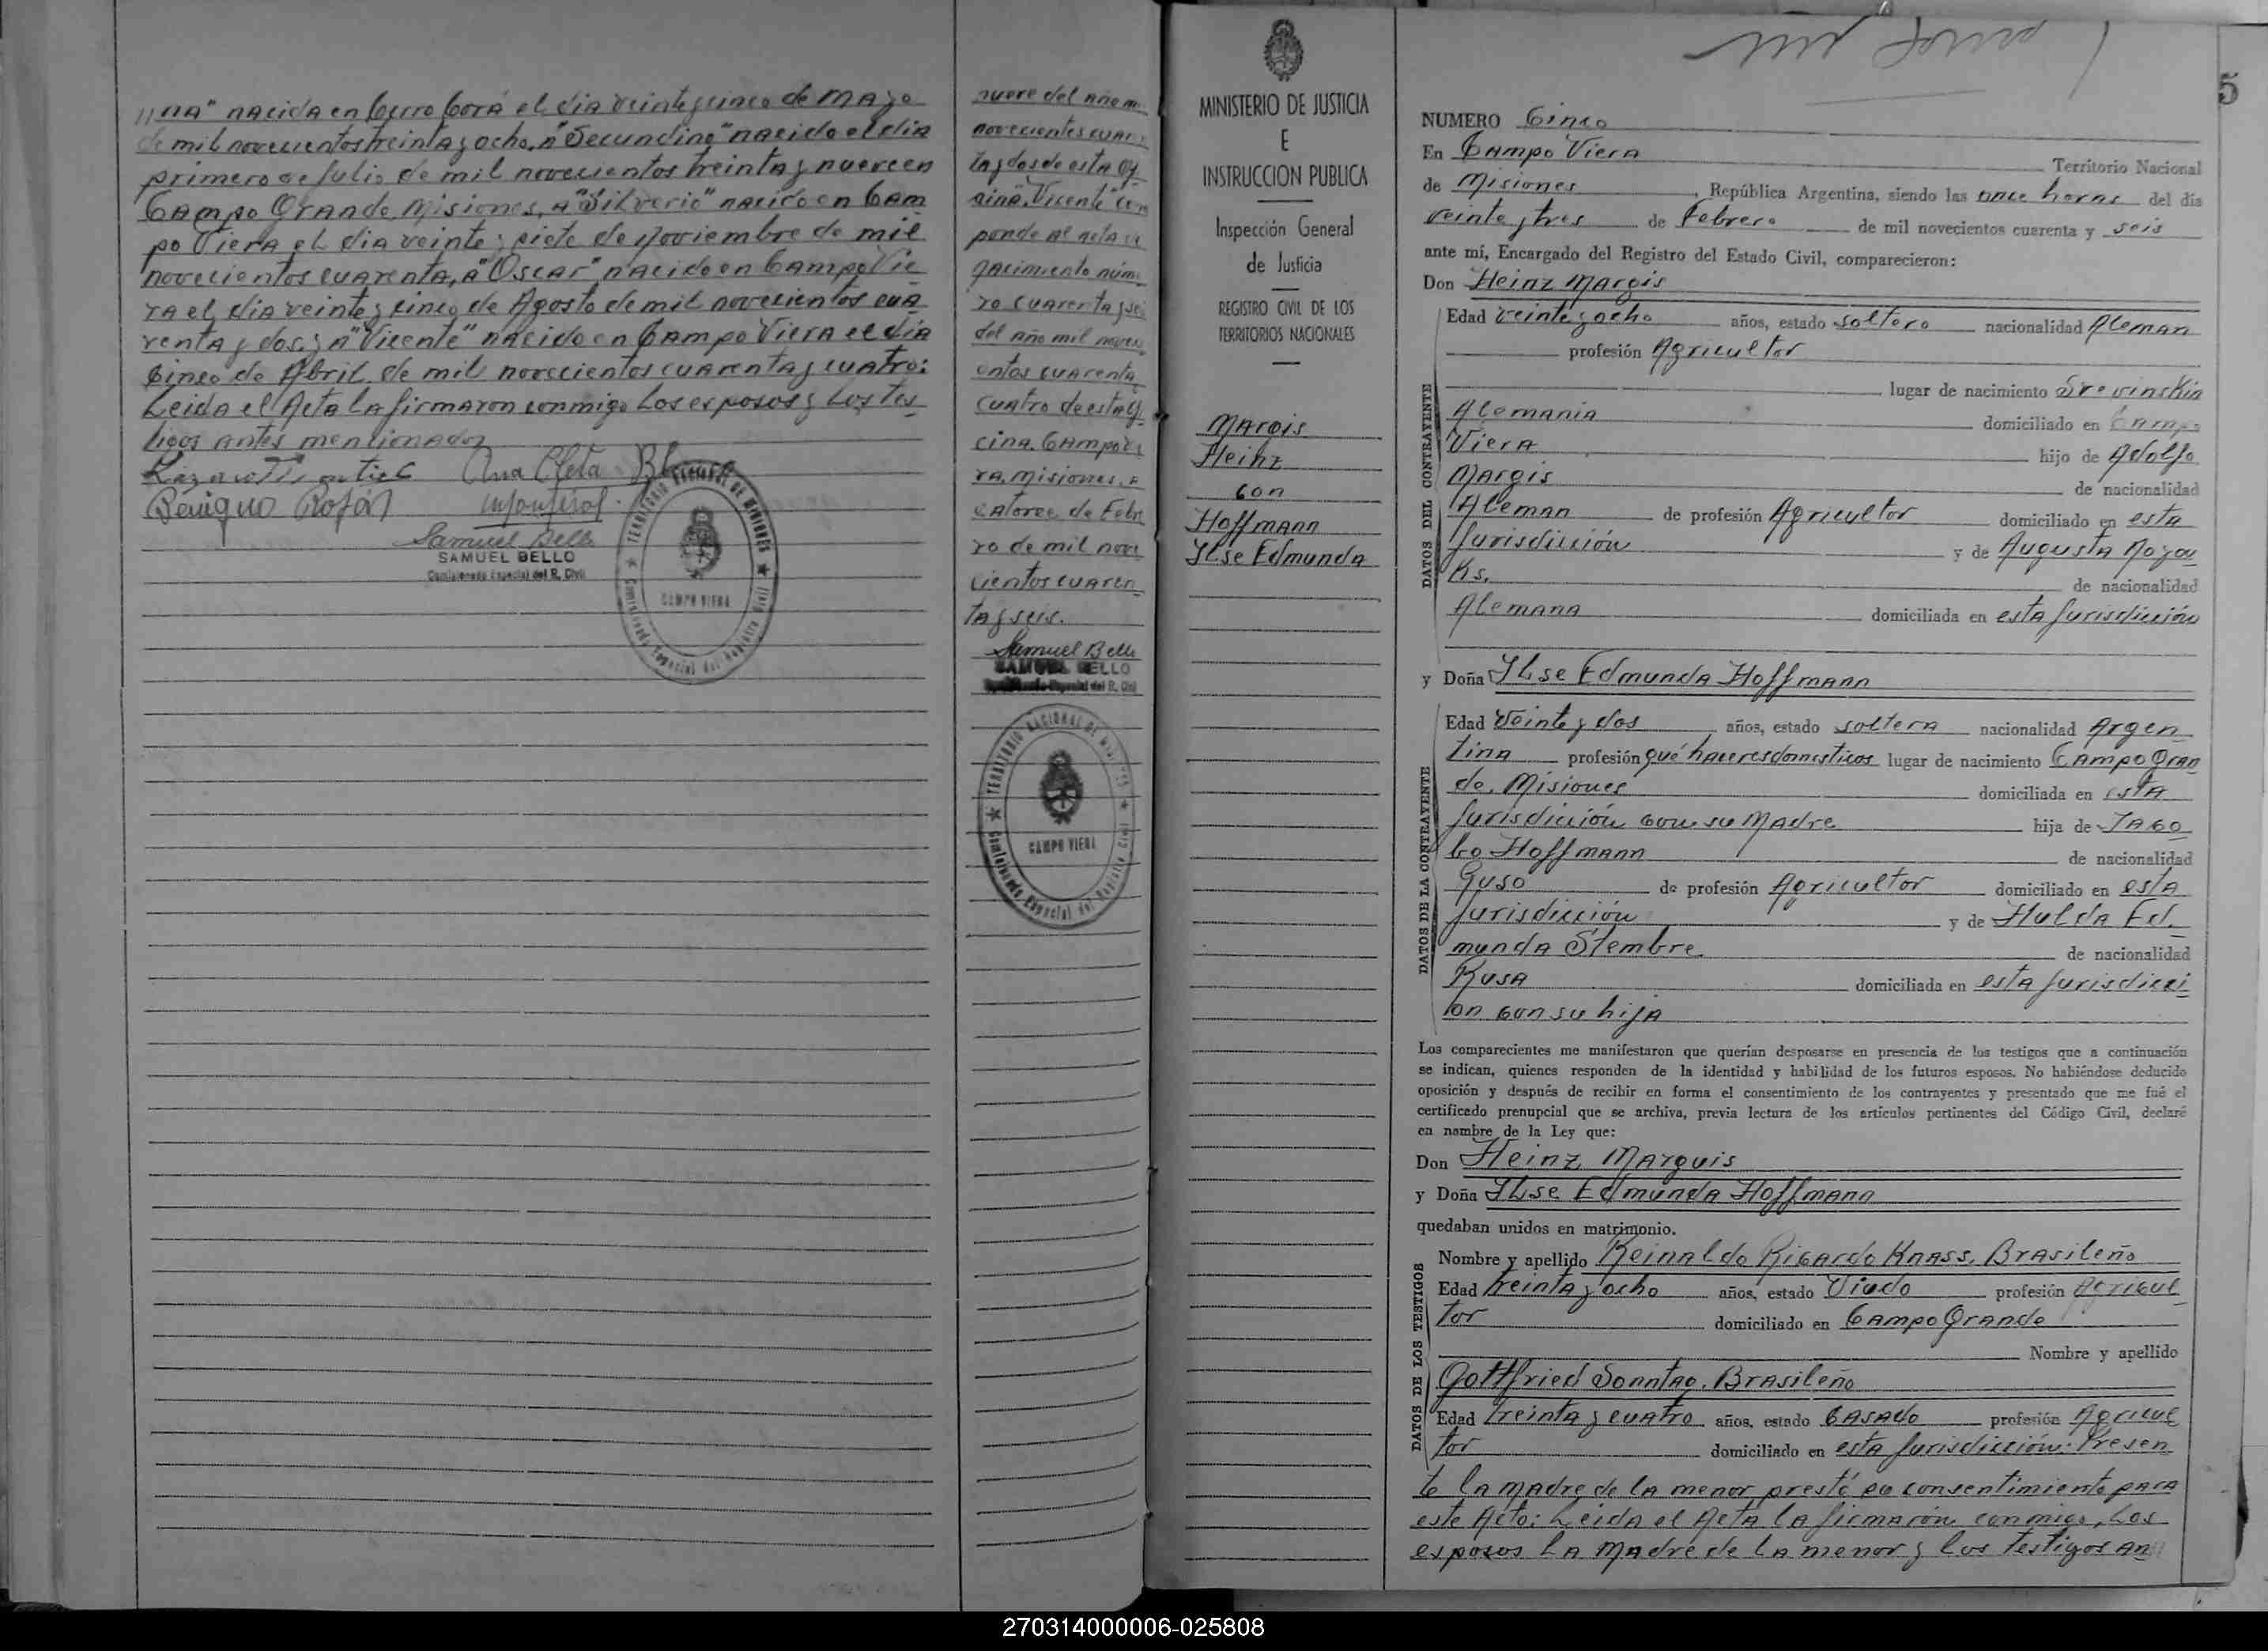 "na" nacida en Cerro Corá el dia veinte y cinco de Mayo
de mil novecientos treinta y ocho, a "Secundino" nacido el dia
primero de Julio de mil novecientos treinta y nueve en
Campo Grande, Misiones, a "Silverio" nacido en Cam
po Viera el dia veinte y siete de Noviembre de mil
novecientos cuarenta, a "Oscar" nacido en Campo Vie
ra el dia veinte y cinco de Agosto de mil novecientos cua
renta y dos, y a "Vicente" nacido en Campo Viera el dia
Cinco de Abril de mil novecientos cuarenta y cuatro:
Leida el Acta la firmaron conmigo Los esposos y Los tes
tigos antes mencionados
Ana Cleta Blanco
Benigno Rojas
Samuel Bello
SAMUEL BELLO
Comisionado Especial del R. Civil
TERRITORIO NACIONAL DE MISIONES
CAMPO VIERA
Comisionado Especial del Registro Civil
nueve del año m
novecientos cuar
ta y dos de esta Of
cina. "Vicente" Co
ponde al acta de
nacimiento núm
ro cuarenta y sei
del año mil novec
entos cuarenta
cuatro de esta Of
cina. Campo Vi
ra, Misiones, a
catorce de Febr
ro de mil nove
cientos cuaren
ta y seis.
Samuel Bello
SAMUEL BELLO
Comisionado Especial del R. Civil
TERRITORIO NACIONAL DE MISIONES
CAMPO VIERA
Comisionado Especial del Registro Civil
MINISTERIO DE JUSTICIA
E
INSTRUCCION PUBLICA
Inspección General
de Justicia
REGISTRO CIVIL DE LOS
TERRITORIOS NACIONALES
Margis
Heinz
Con
Hoffmann
Ilse Edmunda
5
NUMERO Cinco
En Campo Viera Territorio Nacional
de Misiones, República Argentina, siendo las once horas del día
veinte y tres de Febrero de mil novecientos cuarenta y seis
ante mí, Encargado del Registro del Estado Civil, comparecieron:
Don Heinz Margis
DATOS DEL CONTRAYENTE
Edad veinte y ocho años, estado soltero nacionalidad Aleman
profesión Agricultor
lugar de nacimiento
Alemania domiciliado en Campo
Viera hijo de Adolfo
Margis de nacionalidad
Aleman de profesión Agricultor domiciliado en esta
Jurisdicción y de Augusta
de nacionalidad
Alemana domiciliada en esta Jurisdicción
y Doña Ilse Edmunda Hoffmann
DATOS DE LA CONTRAYENTE
Edad Veinte y dos años, estado soltera nacionalidad Argen
tina profesión qué haceres domesticos lugar de nacimiento Campo Gran
de, Misiones domiciliada en esta
Jurisdicción con su Madre hija de Jaco
bo Hoffmann de nacionalidad
Ruso de profesión Agricultor domiciliado en esta
Jurisdicción y de Hulda Ed.
munda Stembre de nacionalidad
Rusa domiciliada en esta Jurisdicci
ón con su hija
Los comparecientes me manifestaron que querían desposarse en presencia de los testigos que a continuación
se indican, quienes responden de la identidad y habilidad de los futuros esposos. No habiéndose deducido
oposición y después de recibir en forma el consentimiento de los contrayentes y presentado que me fué el
certificado prenupcial que se archiva, previa lectura de los artículos pertinentes del Código Civil, declaré
en nombre de la Ley que:
Don Heinz Marguis
y Doña Ilse Edmunda Hoffmann
quedaban unidos en matrimonio.
DATOS DE LOS TESTIGOS
Nombre y apellido Reinaldo Ricardo Knass, Brasileño
Edad treinta y ocho años, estado Viudo profesión Agricul
tor domiciliado en Campo Grande
Nombre y apellido
Gottfried Sonntag, Brasileño
Edad treinta y cuatro años, estado Casado profesión Agricul
tor domiciliado en esta Jurisdicción: Presen
te la madre de la menor prestó su consentimiento para
este Acto: Leida el Acta la firmaron conmigo, Los
esposos la madre de la menor y los testigos an
270314000006-025808